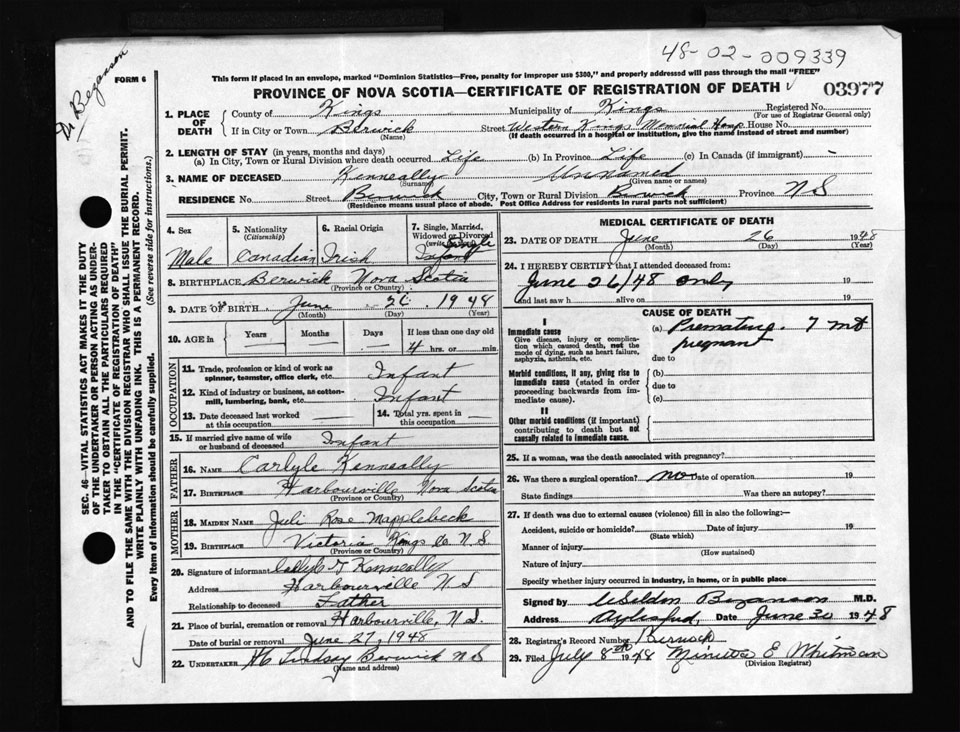 48-02-009339
Dr Bezanson
FORM 6
This form if placed in an envelope, marked "Dominion Statistics—Free, penalty for improper use $300," and properly addressed will pass through the mail "FREE"
PROVINCE OF NOVA SCOTIA—CERTIFICATE OF REGISTRATION OF DEATH 03977
1. PLACE OF DEATH County of Kings Municipality of Kings Registered No. (For use of Registrar General only)
If in City or Town Berwick (Name) Street Western Kings Memorial Hosp House No.
(If death occurred in a hospital or institution, give the name instead of street and number)
2. LENGTH OF STAY (in years, months and days)
(a) In City, Town or Rural Division where death occurred Life (b) In Province Life (c) In Canada (if immigrant) -
3. NAME OF DECEASED Kenneally (Surname) Unnamed (Given name or names)
RESIDENCE No. Street Berwick City, Town or Rural Division Berwick Province N S
(Residence means usual place of abode. Post Office Address for residents in rural parts not sufficient)
SEC. 46—VITAL STATISTICS ACT MAKES IT THE DUTY
OF THE UNDERTAKER OR PERSON ACTING AS UNDER-
TAKER TO OBTAIN ALL THE PARTICULARS REQUIRED
IN THE "CERTIFICATE OF REGISTRATION OF DEATH"
AND TO FILE THE SAME WITH THE DIVISION REGISTRAR WHO SHALL ISSUE THE BURIAL PERMIT.
WRITE PLAINLY WITH UNFADING INK. THIS IS A PERMANENT RECORD.
Every item of information should be carefully supplied. (See reverse side for instructions.)
4. Sex Male
5. Nationality (Citizenship) Canadian
6. Racial Origin Irish
7. Single, Married, Widowed or Divorced Single Infant
8. BIRTHPLACE Berwick Nova Scotia
(Province or Country)
9. DATE OF BIRTH June 26 1948
(Month) (Day) (Year)
10. AGE in Years Months Days If less than one day old
4 hrs. or min.
OCCUPATION
11. Trade, profession or kind of work as spinner, teamster, office clerk, etc. Infant
12. Kind of industry or business, as cotton-mill, lumbering, bank, etc. Infant
13. Date deceased last worked at this occupation 14. Total yrs. spent in this occupation
15. If married give name of wife or husband of deceased Infant
FATHER
16. NAME Carlyle Kenneally
17. BIRTHPLACE Harbourville Nova Scotia
(Province or Country)
MOTHER
18. MAIDEN NAME Juli Rose Mapplebeck
19. BIRTHPLACE Victoria Kings Co. N.S.
(Province or Country)
20. Signature of informant Kenneally
Address Harbourville N S
Relationship to deceased Father
21. Place of burial, cremation or removal Harbourville, N.S.
Date of burial or removal June 27, 1948
22. UNDERTAKER Lindsay Berwick N S
(Name and address)
MEDICAL CERTIFICATE OF DEATH
23. DATE OF DEATH June 26 1948
(Month) (Day) (Year)
24. I HEREBY CERTIFY that I attended deceased from:
June 26/48 only 19
and last saw h alive on 19
CAUSE OF DEATH
I
Immediate cause
Give disease, injury or complication which caused death, not the mode of dying, such as heart failure, asphyxia, asthenia, etc.
(a) Premature. 7 mts
pregnant
due to
Morbid conditions, if any, giving rise to immediate cause (stated in order proceeding backwards from immediate cause).
(b)
due to
(c)
II
Other morbid conditions (if important) contributing to death but not causally related to immediate cause.
25. If a woman, was the death associated with pregnancy?
26. Was there a surgical operation? no Date of operation 19
State findings Was there an autopsy?
27. If death was due to external causes (violence) fill in also the following:—
Accident, suicide or homicide? Date of injury 19
(State which)
Manner of injury
(How sustained)
Nature of injury
Specify whether injury occurred in industry, in home, or in public place
Signed by Weldon Bezanson M.D.
Address Aylesford, Date June 30 1948
28. Registrar's Record Number Berwick
29. Filed July 8th 1948 Minetta E Whitman
(Division Registrar)